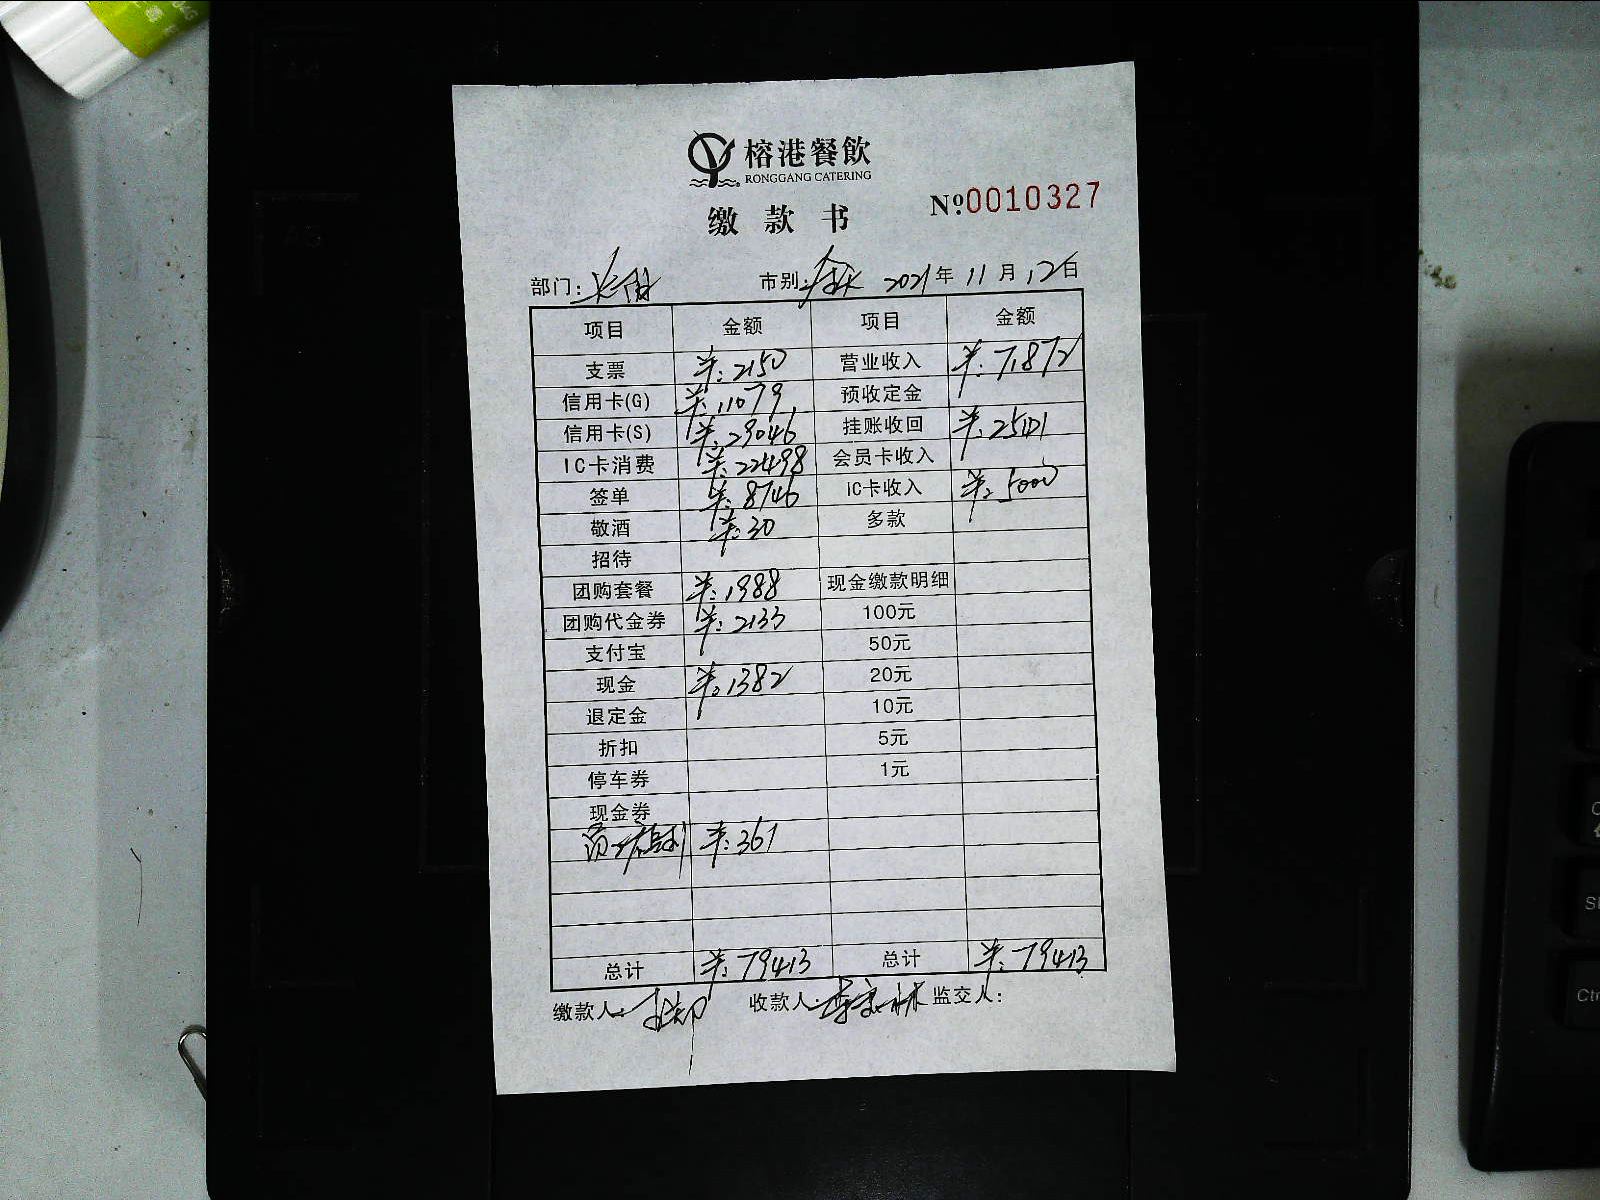 榕港餐飲
RONGGANG CATERING
缴款书 №0010327
部门: 市别: 2021年 11月 12日
项目 金额 项目 金额
支票 ¥:2150 营业收入 ¥:71872
信用卡(G) ¥:11079 预收定金
信用卡(S) ¥:29046 挂账收回 ¥:2541
IC卡消费 ¥:22498 会员卡收入
签单 ¥:8746 IC卡收入 ¥:5000
敬酒 ¥:30 多款
招待
团购套餐 ¥:1988 现金缴款明细
团购代金券 ¥:2133 100元
支付宝 50元
现金 ¥:1382 20元
退定金 10元
折扣 5元
停车券 1元
现金券
员工福利 ¥:361
总计 ¥:79413 总计 ¥:79413
缴款人: 收款人: 监交人: